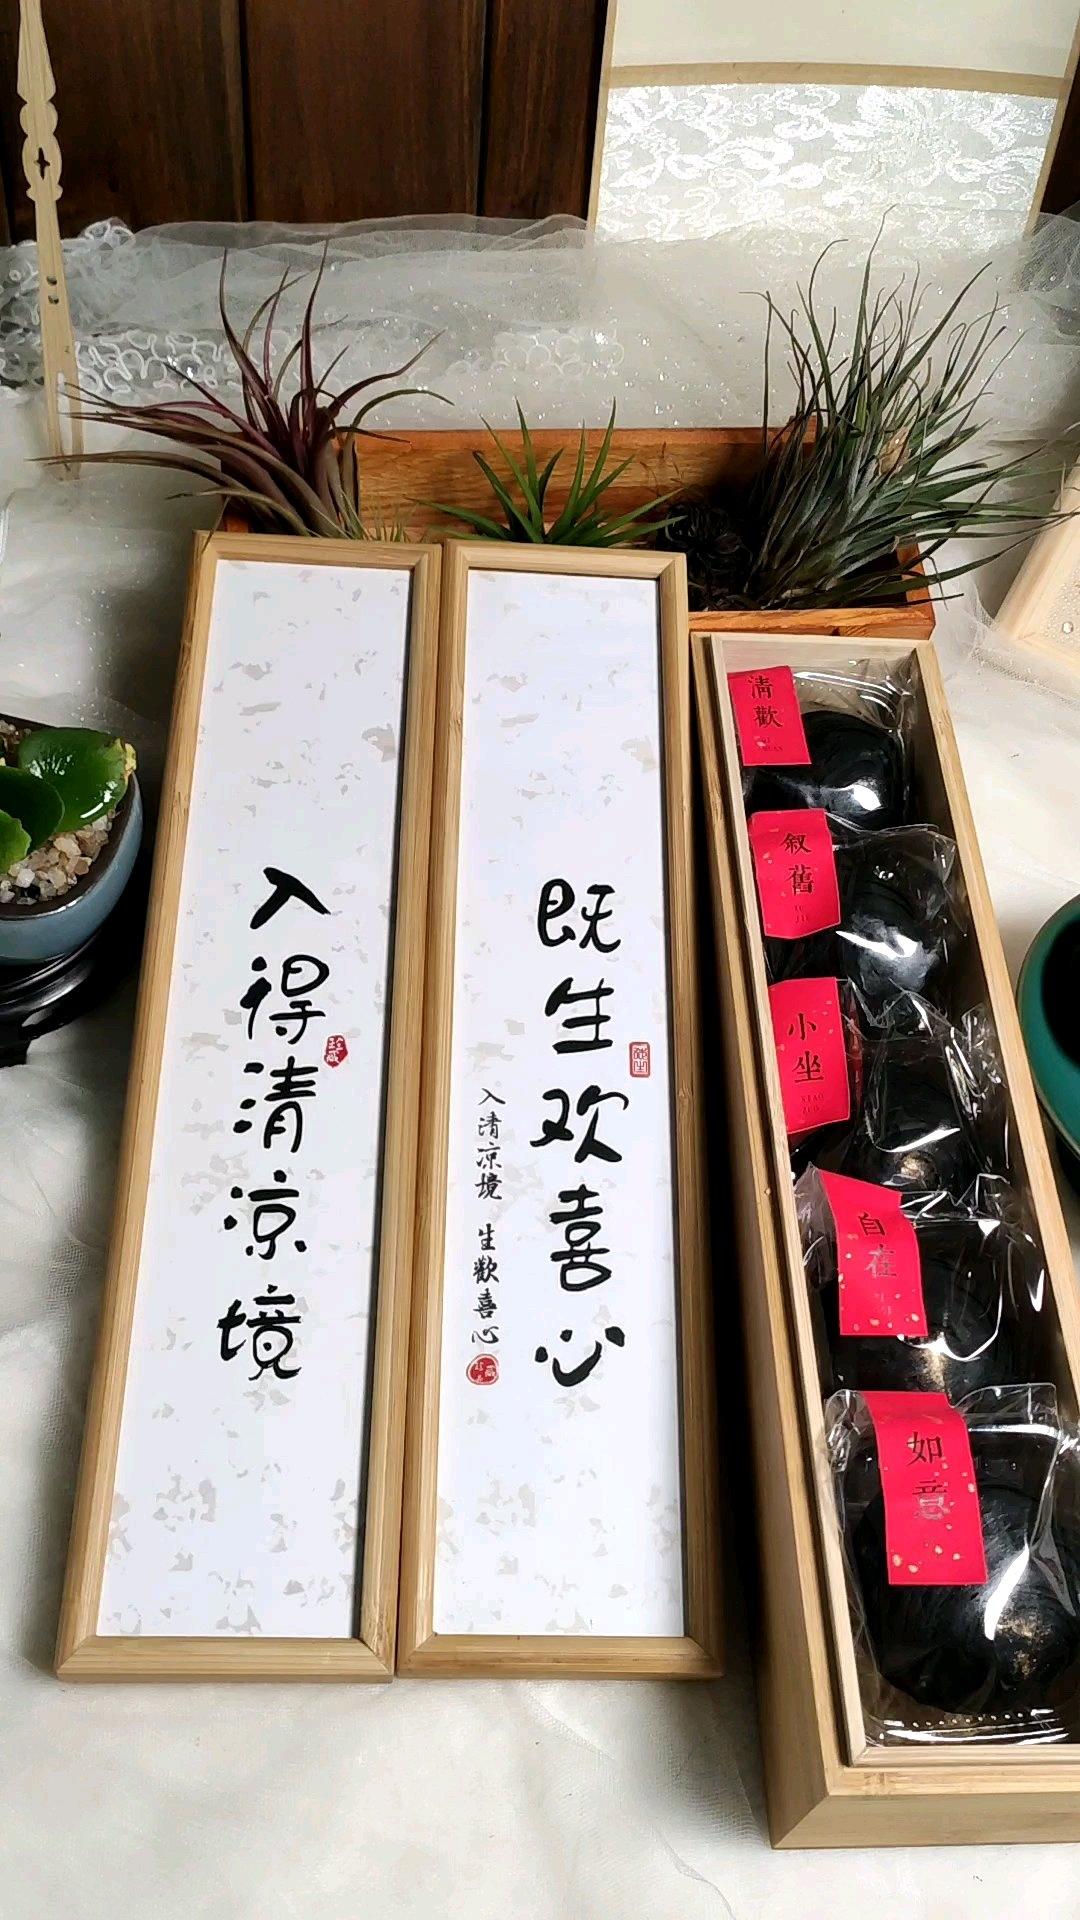 入得清凉境
既生欢喜心
入清凉境 生歡喜心
清歡
叙舊
小坐
XIAO
ZUO
自在
如意